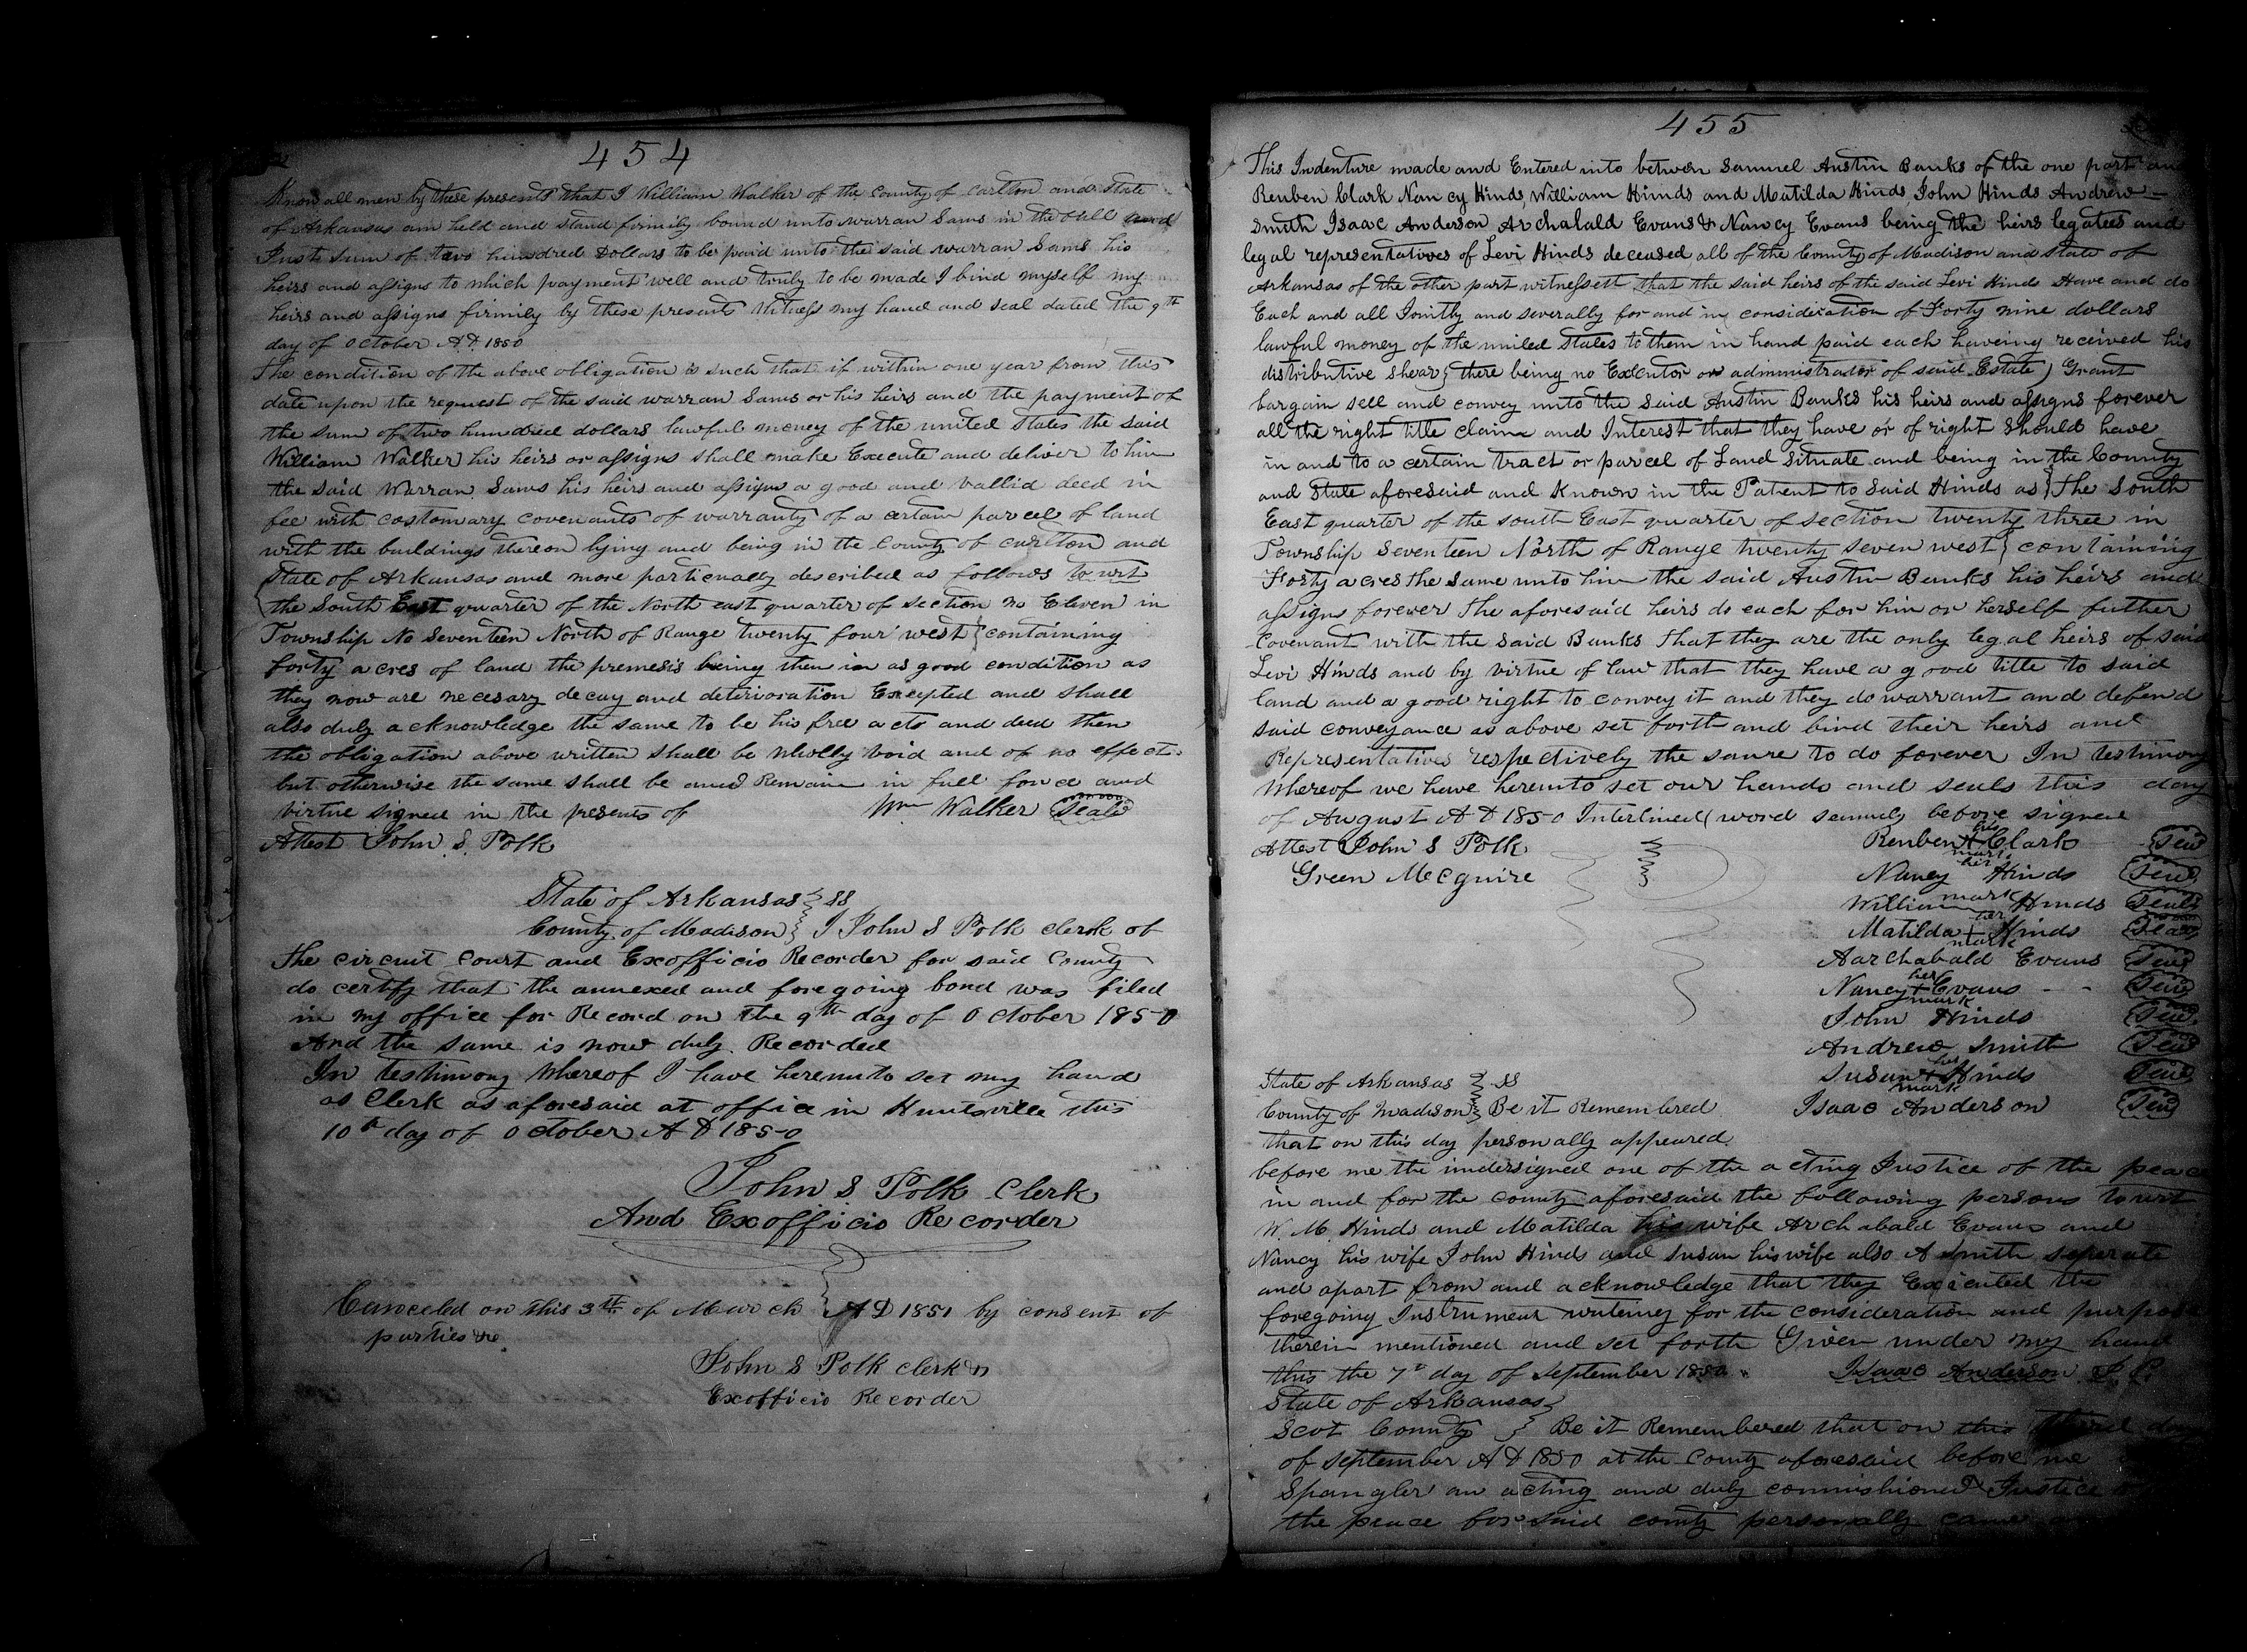 454
Know all men by these presents that I William Walker of the county of Carlton and state
of Arkansas am held and stand firmily bound unto warran Sams in the full and
Just sum of two hundred Dollars to be paid unto the said warran Sams his
heirs and assigns to which payment well and truly to be made I bind myself my
heirs and assigns firmily by these presents Witness my hand and seal dated the 9th
day of October A.D. 1850
The condition of the above obligation is such that if within one year from this
date upon the request of the said warran Sams or his heirs and the payment of
the sum of two hundred dollars lawful money of the united States the said
William Walker his heirs or assigns shall make Execute and deliver to him
the said Warran Sams his heirs and assigns a good and vallid deed in
fee with costomary covenants of warranty of a certain parcel of land
with the buildings thereon lying and being in the County of Carlton and
State of Arkansas and more particually described as follows to wit
the South East quarter of the North east quarter of section no Eleven in
Township No Seventeen North of Range twenty four west containing
forty acres of land the premesis being then in as good condition as
they now are necesary decay and deterioration Excepted and shall
also duly acknowledge the same to be his free acts and deed then
the obligation above written shall be wholly void and of no effect
but otherwise the same shall be and Remain in full force and
virtue signed in the presents of Wm Walker Seal
Attest John S. Polk
State of Arkansas } SS
County of Madison } I John S Polk clerk of
the circuit court and Exofficio Recorder for said County
do certify that the annexed and foregoing bond was filed
in my office for Record on the 9th day of October 1850
And the same is now duly Recorded
In Testimony Whereof I have hereunto set my hand
as Clerk as aforesaid at office in Huntsville this
10th day of October A D 1850
John S Polk Clerk
And Exofficio Recorder
Canceled on this 3th of March A D 1851 by consent of
parties &c
John S Polk clerk &
Exofficio Recorder
455
This Indenture made and Entered into between Samuel Austin Banks of the one part and
Reuben Clark Nancy Hinds, William Hinds and Matilda Hinds, John Hinds Andrew
Smith Isaac Anderson Archalald Evans & Nancy Evans being the heirs legatees and
legal representatives of Levi Hinds deceased all of the County of Madison and State of
Arkansas of the other part witnesseth that the said heirs of the said Levi Hinds Have and do
Each and all Jointly and severally for and in consideration of Forty nine dollars
lawful money of the united States to them in hand paid each haveing received his
distributive shear } there being no Exeutor or administrator of said Estate ) Grant
bargain sell and convey unto the said Austin Banks his heirs and assigns forever
all the right title claim and Interest that they have or of right should have
in and to a certain tract or parcel of Land situate and being in the County
and State aforesaid and Known in the Patent to said Hinds as } The South
East quarter of the south East quarter of section twenty three in
Township Seventeen North of Range twenty seven west } containing
Forty acres the same unto him the said Austin Banks his heirs and
assigns forever The aforesaid heirs do each for him or herself futher
Covenant with the said Banks that they are the only legal heirs of said
Levi Hinds and by virtue of law that they have a good title to said
land and a good right to convey it and they do warrant and defend
said conveyance as above set forth and bind their heirs and
Representatives respectively the same to do forever In testimony
Whereof we have hereunto set our hands and seals this day
of August A D 1850 Interlined (word samuel) before signed
Attest John S Polk Reuben his + mark Clark Seal
Green McGuire Nancy her Hinds Seal
William mark Hinds Seal
Matilda her + mark Hinds Seal
Aarchabald Evans Seal
Nancy her + mark Evans Seal
John Hinds Seal
Andrew Smith Seal
State of Arkansas } SS Susan her + mark Hinds Seal
County of Madison } Be it Remembered Isaac Anderson Seal
that on this day personally appeared
before me the undersigned one of the acting Justice of the peace
in and for the county aforesaid the following persons to wit
W. M. Hinds and Matilda his wife Archabald Evans and
Nancy his wife John Hinds and Susan his wife also A Smith seperate
and apart from and acknowledge that they Executed the
foregoing Instrument writeing for the consideration and purpose
therein mentioned and set forth Given under my hand
this the 7th day of September 1850 Isaac Anderson J. P.
State of Arkansas }
Scot County } Be it Remembered that on this day
of september A D 1850 at the County aforesaid before me
Spangler an acting and duly commishioned Justice of
the peace for said county personally came